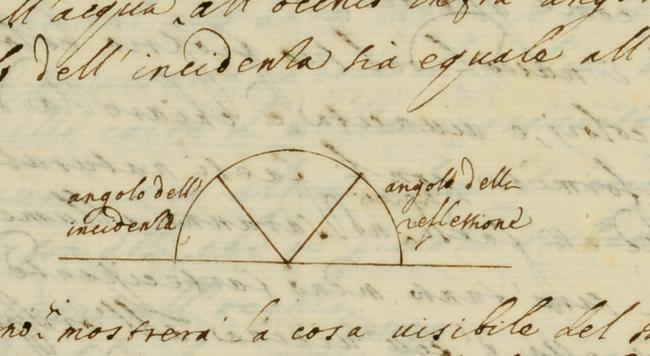 ll'acqua all'occhio infra ang
dell'incidenta sia equale all'
angolo dell'
incidenta
angolo della
reflessione
mostrera la cosa visibile del